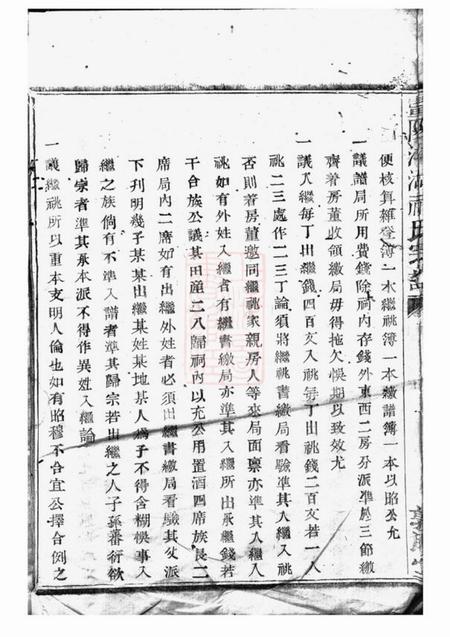 便核算雜登簿一本繼祧簿一本繳譜簿一本以昭公允
一議譜局所用費錢除祠內存錢外東西二房分派準於三節繳
齊着房董收領繳局毋得拖欠悞期以致效尤
一議入繼每丁出繼錢四百文入祧每丁出祧錢二百文若一人
祧二三處作二三丁論須將繼祧書繳局看驗準其入繼入祧
否則着房董邀同繼祧家親房等來局面禀亦準其入繼入
祧如有外姓入繼含有繼書繳局亦準其入繼所出承繼錢若
干合族公議某田產二八歸祠內以充公用置酒四席族長二
席局內二席如有出繼外姓者必須出繼書繳局看驗其父派
下刊明幾子某某出繼某姓某地某人為子不得含糊悞事入
繼之族倘有不準入譜者準其歸宗若出繼之人子孫蕃衍欲
歸宗者準其承本派不得作異姓入繼論
一議繼祧所以重本支明人倫也如有昭穆不合宜公擇合例之